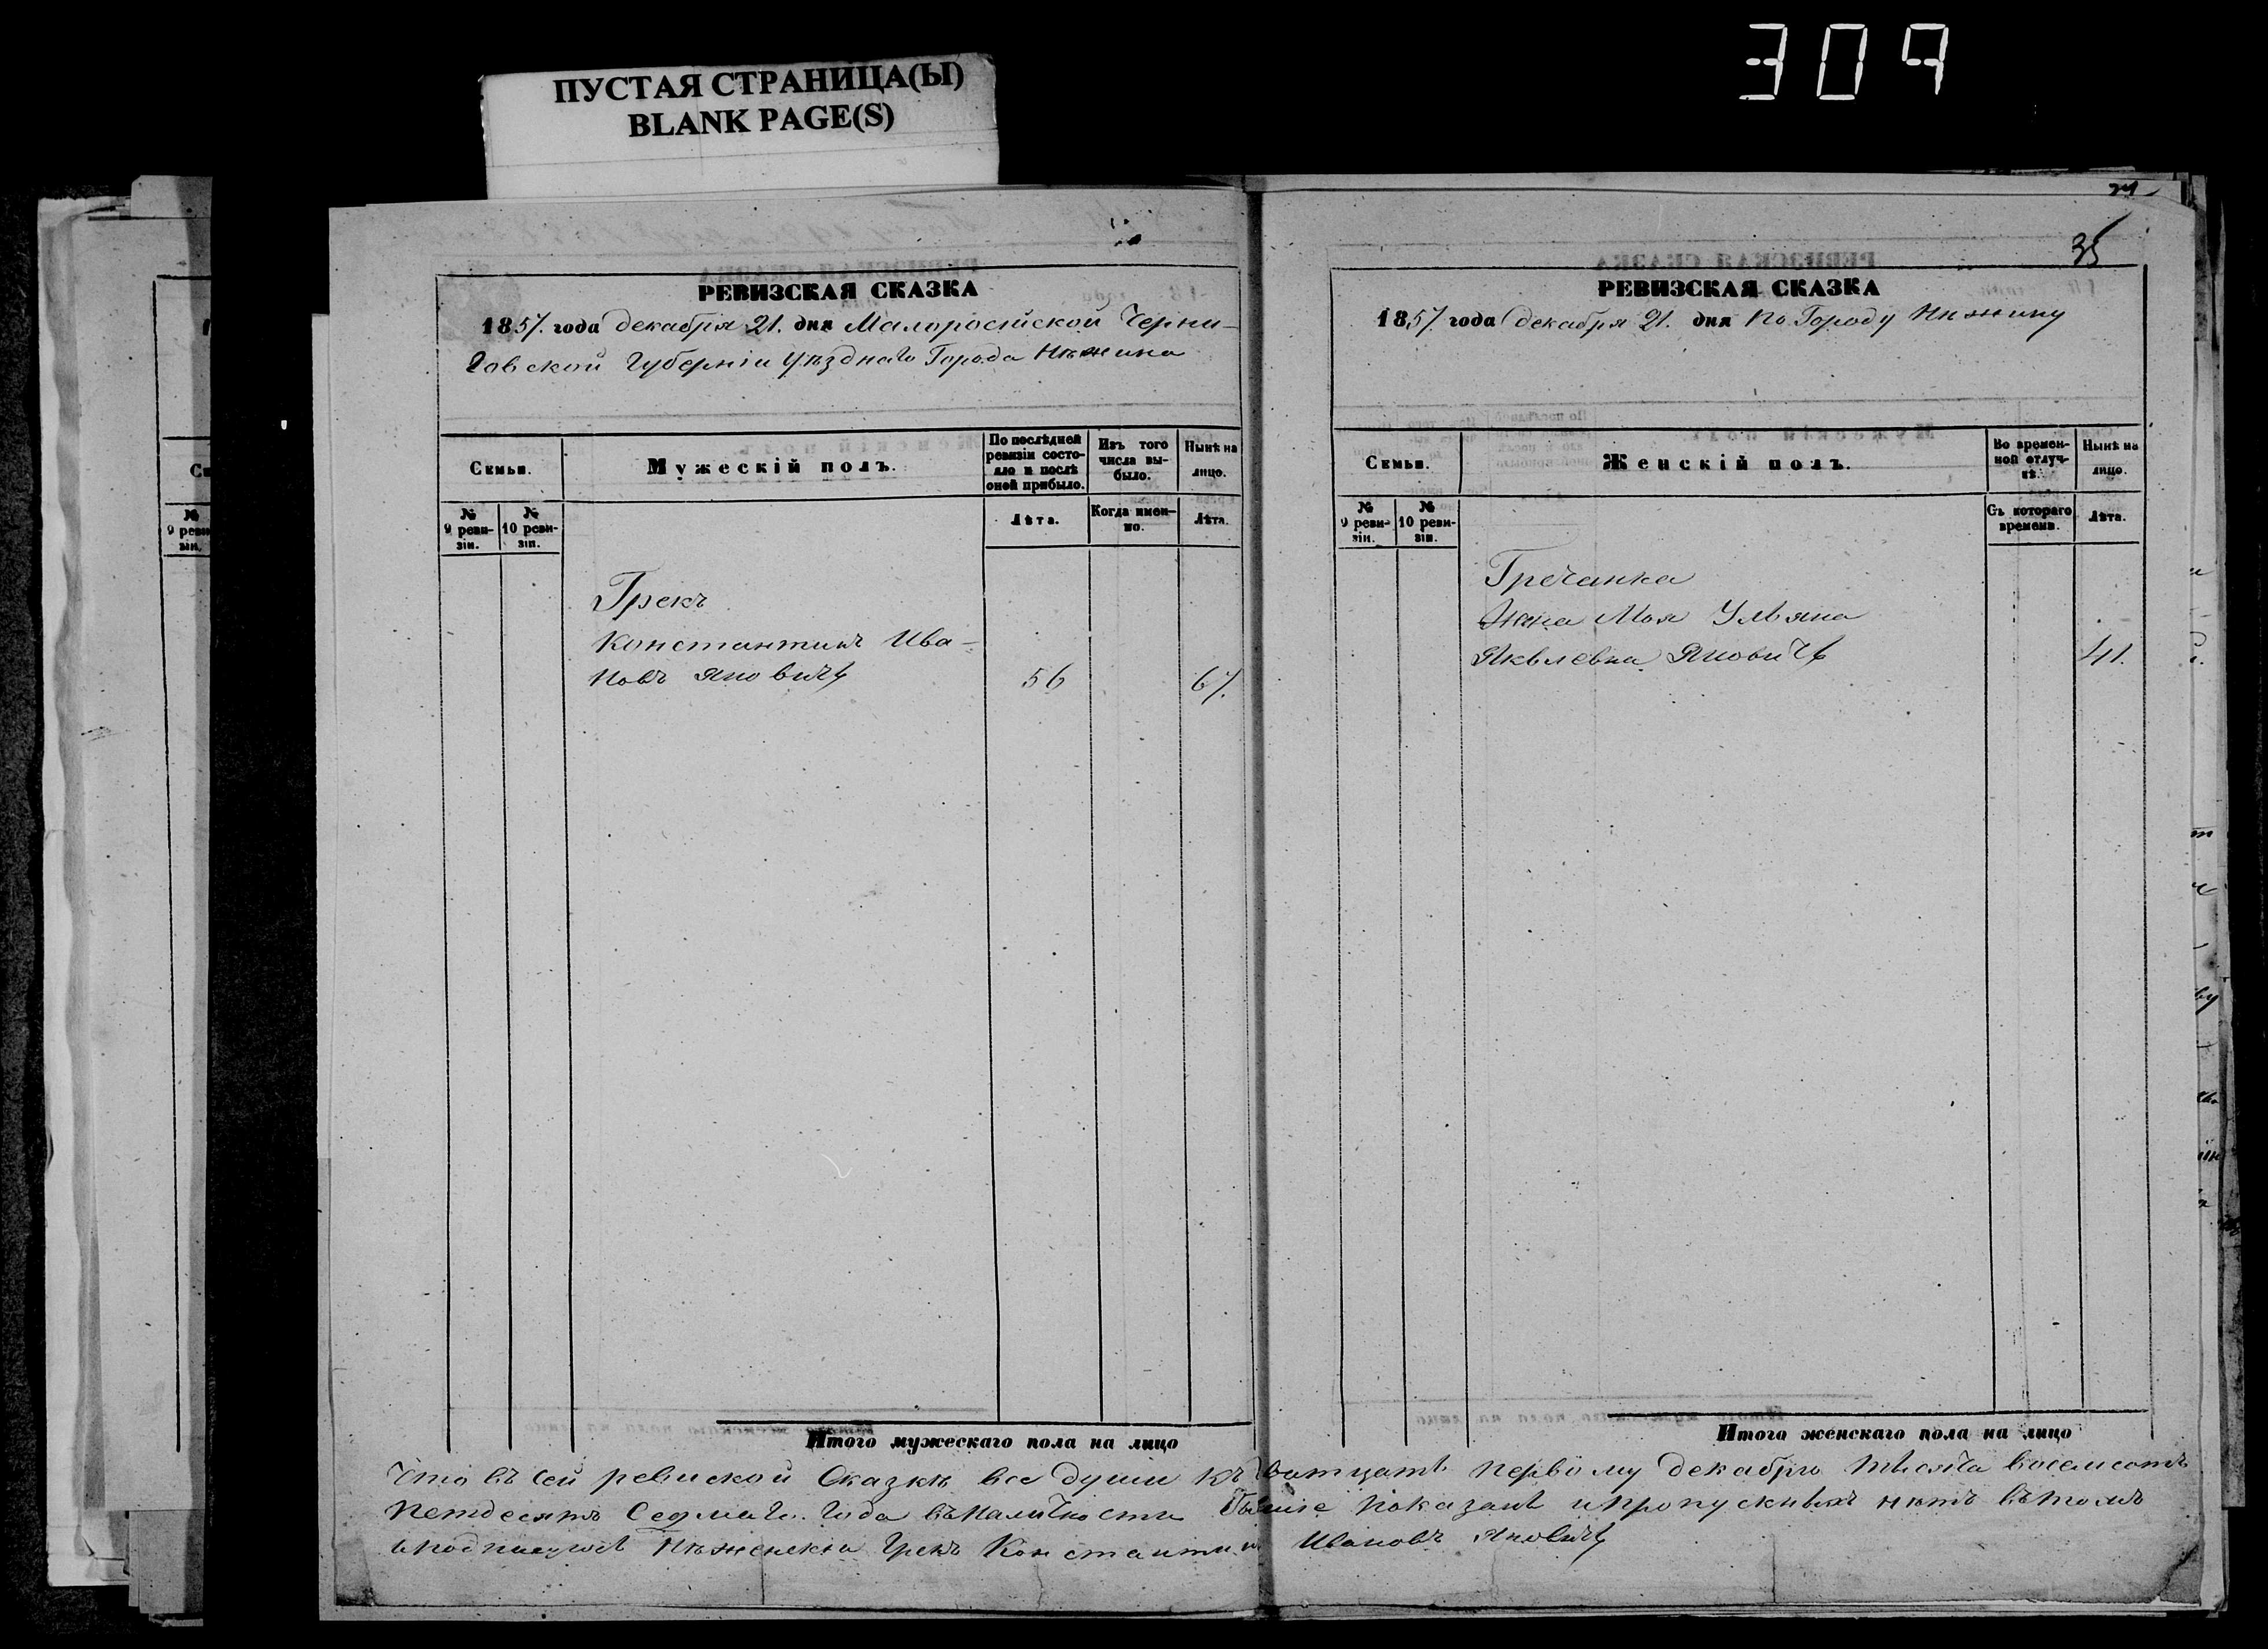 309
ПУСТАЯ СТРАНИЦА(Ы)
BLANK PAGE(S)
РЕВИЗСКАЯ СКАЗКА
1857. года декабря 21. дня Малоросійской Черни-
говской Губерніи Уѣзднаго Города Нѣжина
Семьи.
Мужескій полъ.
По послѣдней ревизіи состояло и послѣ оной прибыло.
Изъ того числа выбыло.
Нынѣ на лицо.
№ 9 ревизіи.
№ 10 ревизіи.
Лѣта.
Когда именно.
Лѣта.
Грекъ
Константинъ Ива-
новъ Яновичъ 56 67.
Итого мужескаго пола на лицо
35
РЕВИЗСКАЯ СКАЗКА
1857. года декабря 21. дня По Городу Нѣжину
Семьи.
Женскій полъ.
Во временной отлучкѣ.
Нынѣ на лицо.
№ 9 ревизіи.
№ 10 ревизіи.
Съ котораго времени.
Лѣта.
Гречанка
Жена Моя Ульяна
Яквлевна Яновичъ 41.
Итого женскаго пола на лицо
Что въ сей ревиской Сказкѣ все души къ первому декабрю тисяча восемсотъ
петдесятъ Седмаго Года въналичности показанѣ ипропускныхъ нѣтъ вътомъ
Грекъ Константинъ Ивановъ Яновичъ